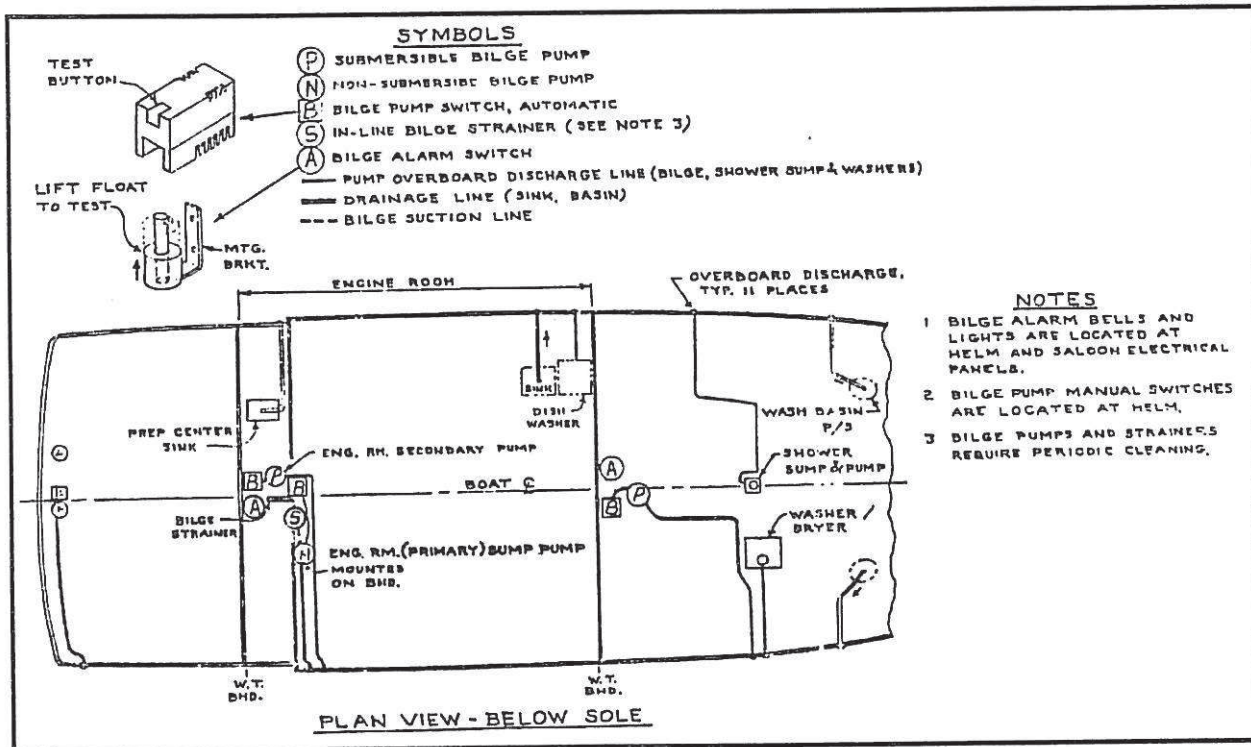 SYMBOLS
TEST
BUTTON
P SUBMERSIBLE BILGE PUMP
N NON-SUBMERSIBE BILGE PUMP
B BILGE PUMP SWITCH, AUTOMATIC
S IN-LINE BILGE STRAINER (SEE NOTE 3)
A BILGE ALARM SWITCH
PUMP OVERBOARD DISCHARGE LINE (BILGE, SHOWER SUMP & WASHERS)
DRAINAGE LINE (SINK, BASIN)
BILGE SUCTION LINE
LIFT FLOAT
TO TEST
MTG.
BRKT.
ENGINE ROOM
OVERBOARD DISCHARGE,
TYP. 11 PLACES
NOTES
1 BILGE ALARM BELLS AND
LIGHTS ARE LOCATED AT
HELM AND SALOON ELECTRICAL
PANELS.
2 BILGE PUMP MANUAL SWITCHES
ARE LOCATED AT HELM.
3 BILGE PUMPS AND STRAINERS
REQUIRE PERIODIC CLEANING.
SINK
DISH
WASHER
WASH BASIN
P/S
PREP CENTER
SINK
ENG. RM. SECONDARY PUMP
SHOWER
SUMP & PUMP
B
P
B
A
S
N
BOAT ℄
A
B
P
BILGE
STRAINER
WASHER/
DRYER
ENG. RM. (PRIMARY) SUMP PUMP
MOUNTED
ON BHD.
B
W.T.
BHD.
W.T.
BHD.
PLAN VIEW - BELOW SOLE